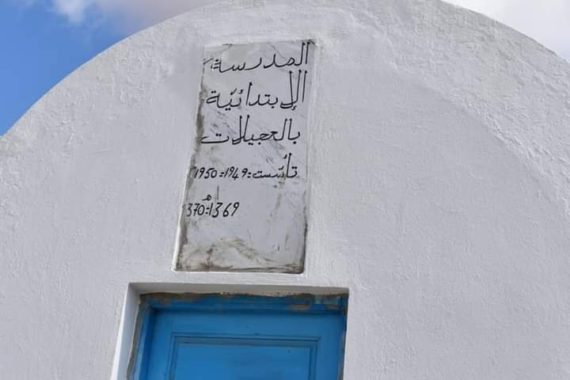 المدرسة
الإبتدائيّة
بالعجيلات
تأسّست=1949=1950
1369=370هـ